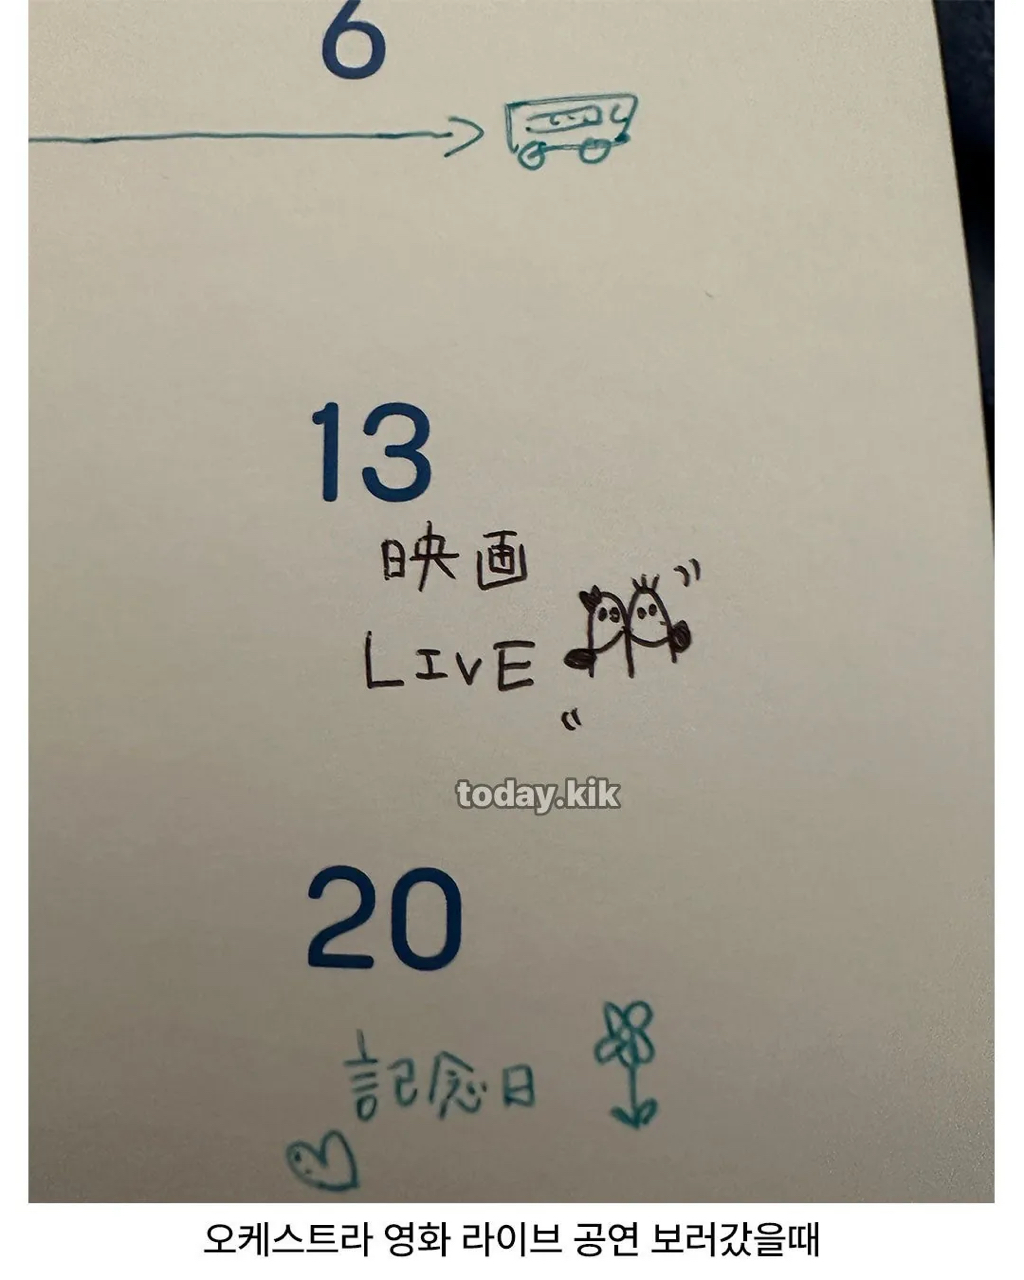 6
13
映画
LIVE
today.kik
20
記念日
오케스트라 영화 라이브 공연 보러갔을때